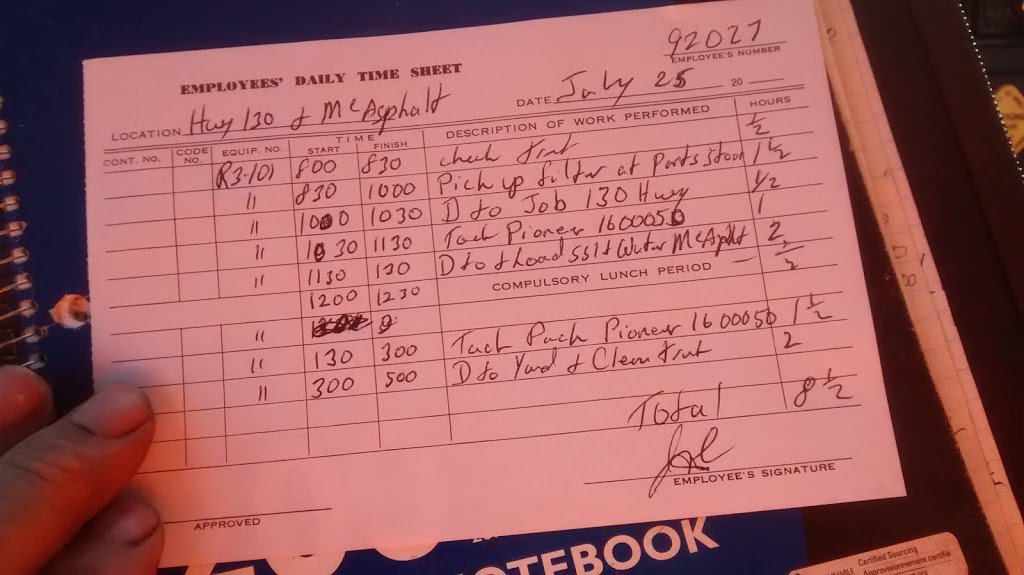 92027
EMPLOYEE'S NUMBER
EMPLOYEES' DAILY TIME SHEET
DATE July 25 20
LOCATION Hwy 130 & McAsphalt
TIME
CONT. NO. CODE NO. EQUIP. NO. START FINISH DESCRIPTION OF WORK PERFORMED HOURS
R3-101 800 830 check trut 1/2
" 830 1000 Pick up filter at Parts stoor 1 1/2
" 1000 1030 D to Job 130 Hwy 1/2
" 1030 1130 Tack Pioneer 1600050 1
" 1130 130 D to & Load SS1 & Water McAsphlt 2
1200 1230 COMPULSORY LUNCH PERIOD - 1/2
"
" 130 300 Tack Pach Pioneer 1600050 1 1/2
" 300 500 D to Yard & Clean trut 2
Total 8 1/2
EMPLOYEE'S SIGNATURE
APPROVED
NOTEBOOK
Certified Sourcing
Approvisionnement certifié